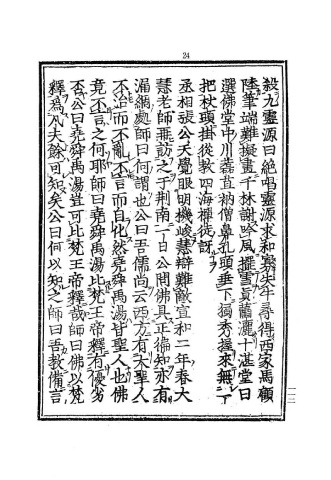 24
殺九靈源曰絶唱靈源求和繋失牛尋得西家馬顧
陸筆端難擬畫千林謝吟風擺雪真蕭灑十湛堂曰
選佛堂中川䕫苴衲僧鼻孔頭垂下獨秀握來無一丁
把杖頭掛從教四海禪徒訝
丞相張公天覺眼明機峻慧辯難敵宣和二年春大
慧老師再訪之于荊南一日公問佛具正徧知亦有
漏網處師曰何謂也公曰吾儒尚云西方有大聖人
不治而不亂不言而自化然堯舜禹湯皆聖人也佛
竟不言之何耶師曰堯舜禹湯比梵王帝釋有優劣
否公曰堯舜禹湯豈可比梵王帝釋哉師曰佛以梵
釋為凡夫餘可知矣公曰何以知之師曰吾教備言